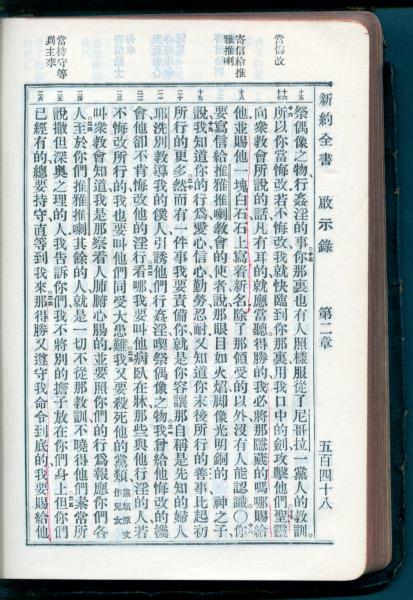 新約全書 啟示錄 第二章 五百四十八
當悔改
寄信給推
雅推喇
當持守等
到主來
祭偶像之物行姦淫的事你那裏也有人照樣服從了尼哥拉一黨人的教訓
所以你當悔改若不悔改我就快臨到你那裏用我口中的劍攻擊他們聖靈
向衆教會所說的話凡有耳的就應當聽得勝的我必將那隱藏的嗎哪賜給
他並賜他一塊白石石上寫着新名除了那領受的以外沒有人能認識〇你
要寫信給推雅推喇教會的使者說那眼目如火焰脚像光明銅的 神之子
說我知道你的行爲愛心信心勤勞忍耐又知道你末後所行的善事比起初
所行的更多然而有一件事我要責備你就是你容讓那自稱是先知的婦人
耶洗別教導我的僕人引誘他們行姦淫喫祭偶像之物我曾給他悔改的機
會他卻不肯悔改他的淫行看哪我要叫他病臥在牀那些與他行淫的人若
不悔改所行的我也要叫他們同受大患難我又要殺死他的黨類黨類原文作兒女
叫衆教會知道我是那察看人肺腑心腸的並要照你們的行爲報應你們各
人至於你們推雅推喇其餘的人就是一切不從那教訓不曉得他們素常所
說撒但深奧之理的人我告訴你們我不將別的擔子放在你們身上但你們
已經有的總要持守直等到我來那得勝又遵守我命令到底的我要賜給他